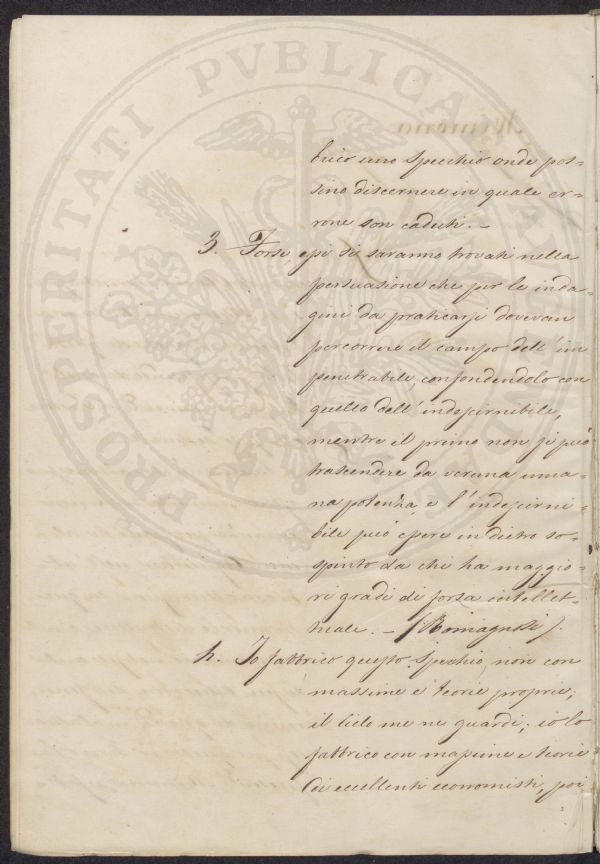 brico uno specchio onde pos-
sino discernere in quale er-
rore son caduti. -
3. Forse essi si saranno trovati nella
persuasione che per le inda-
gini da praticarsi dovevan
percorrere il campo dell'im
penetrabile, confondendolo con
quello dell'indiscernibile,
mentre il primo non si può
trascendere da veruna uma-
na potenza, e l'indiscerni-
bile può essere in dietro so-
spinto da chi ha maggio-
ri gradi di forza intellet-
tuale. - (Romagnosi).
4. Io fabbrico questo specchio, non con
massime e teorie proprie;
il Cielo me ne guardi; io lo
fabbrico con massime e teorie
di eccellenti economisti, poi
PROSPERITATI PVBLICAE